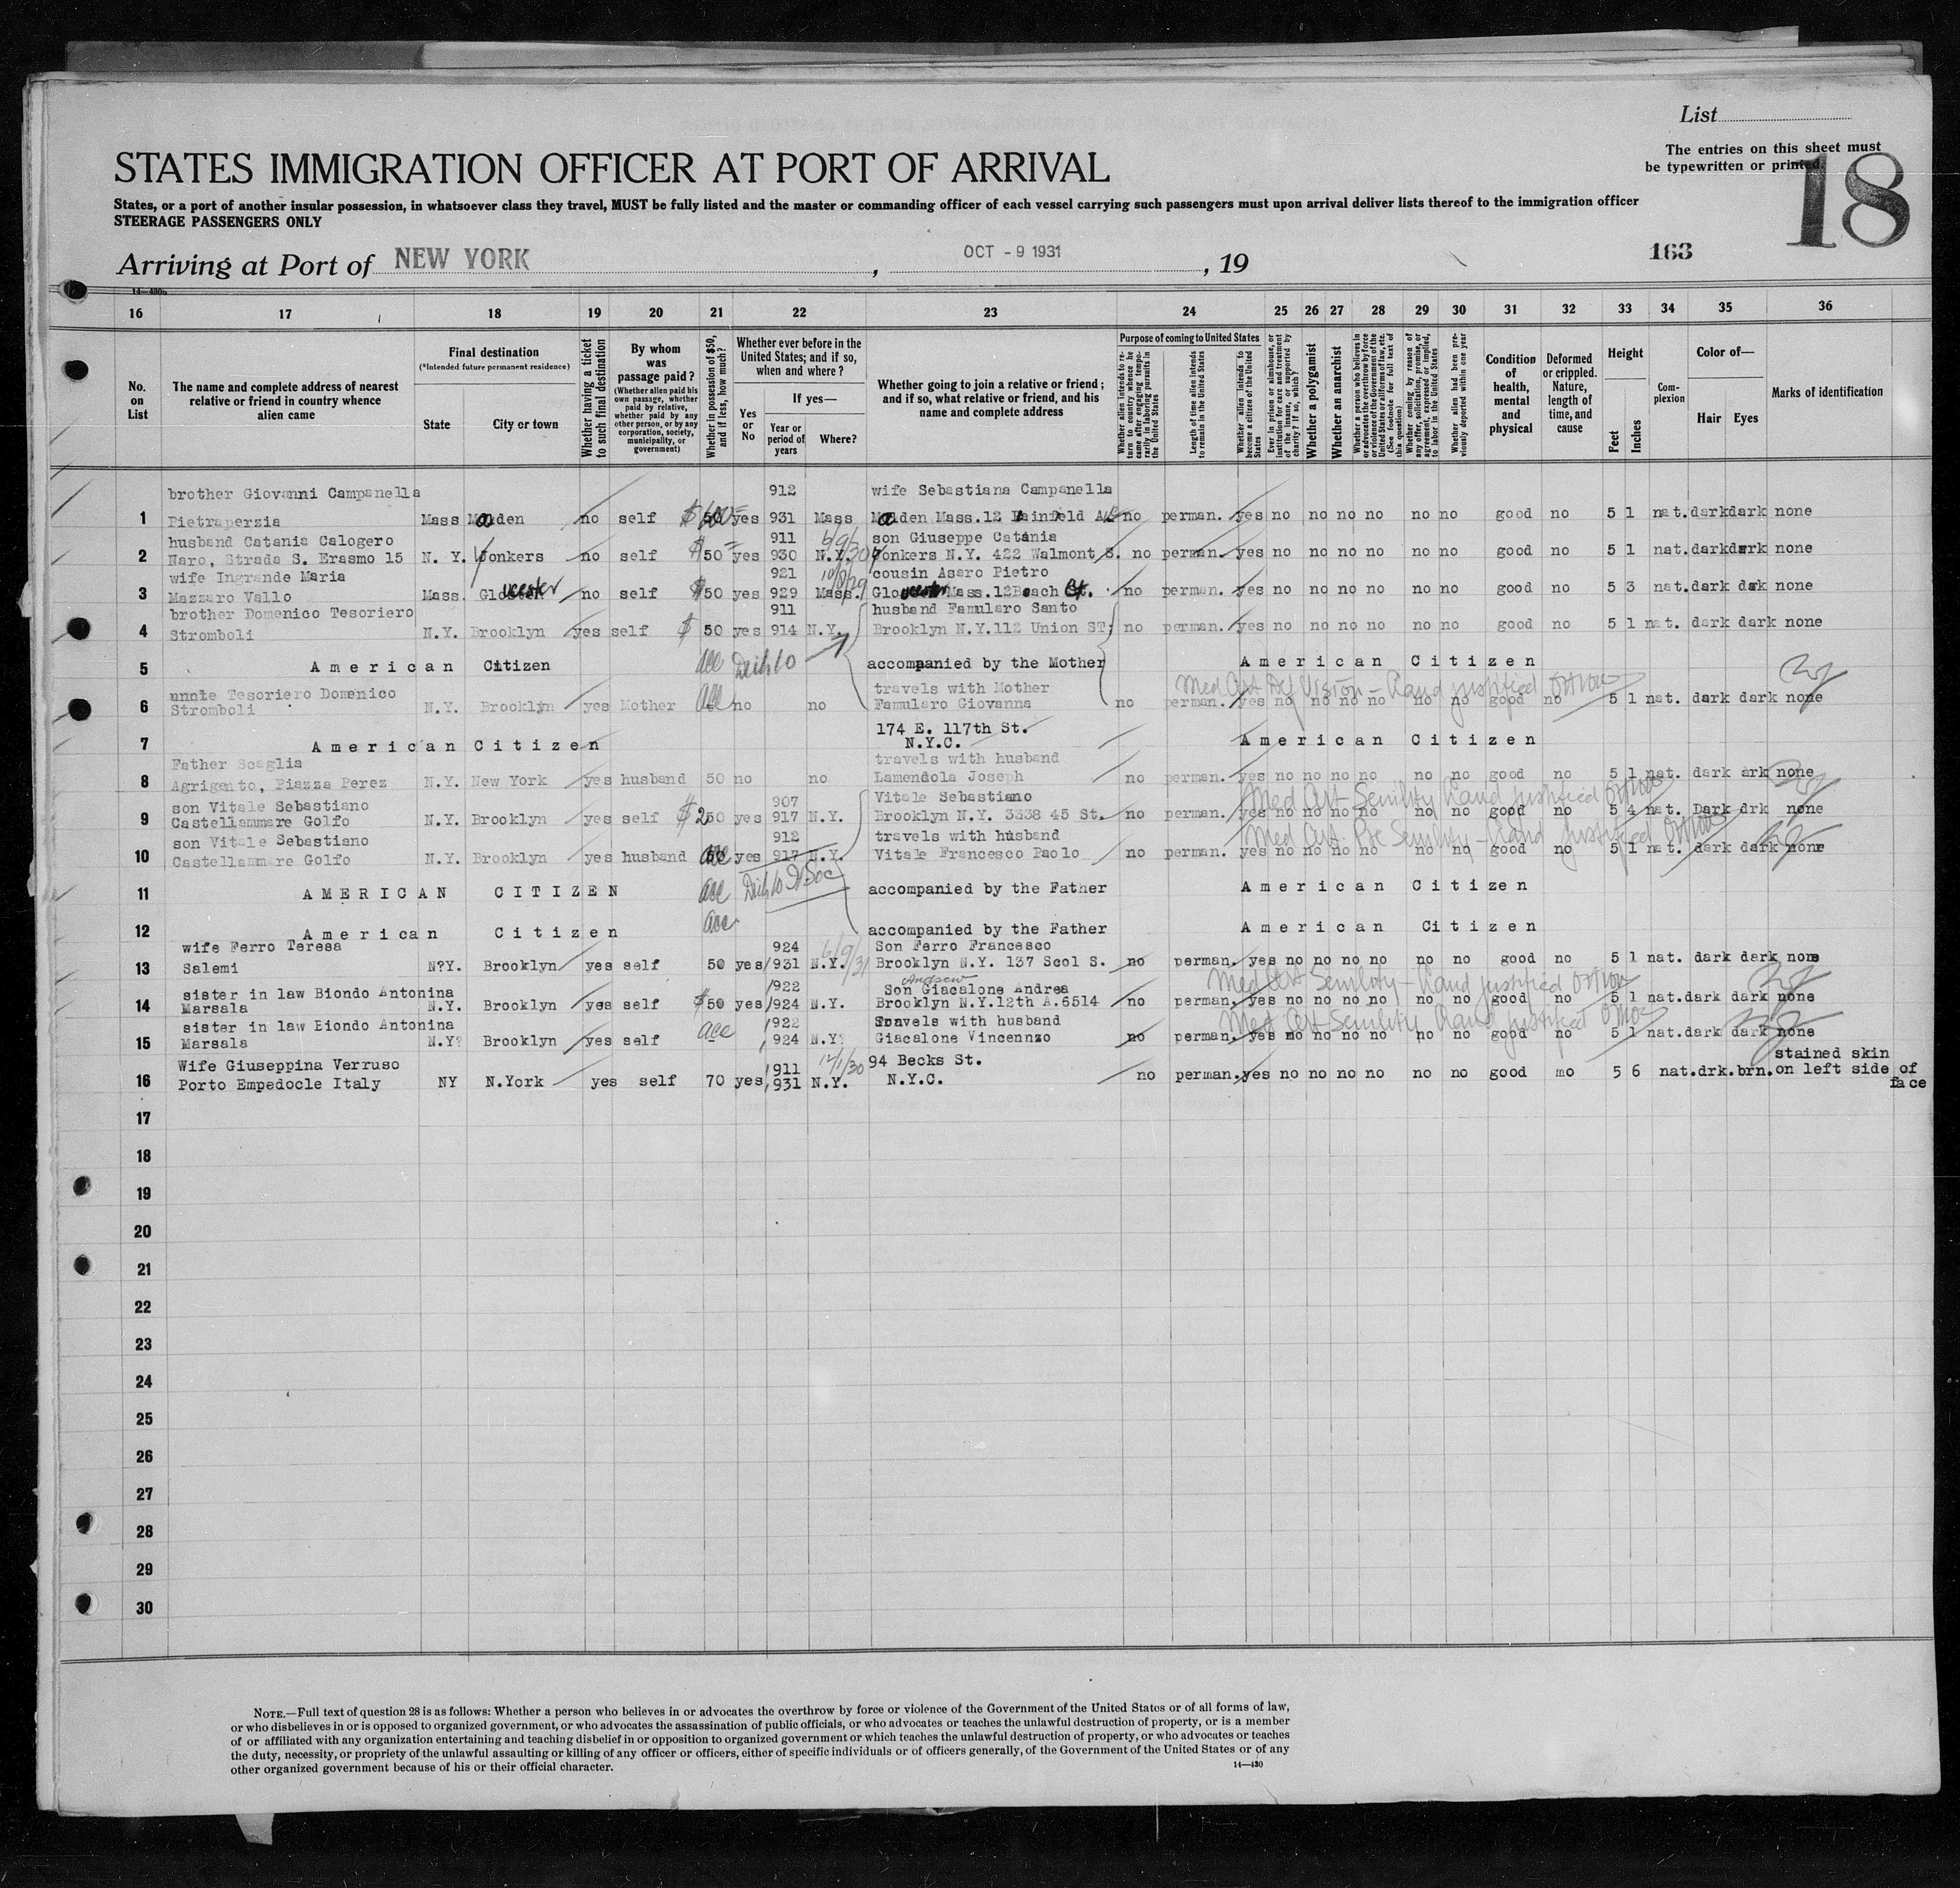 List
The entries on this sheet must
be typewritten or printed.
18
STATES IMMIGRATION OFFICER AT PORT OF ARRIVAL
States, or a port of another insular possession, in whatsoever class they travel, MUST be fully listed and the master or commanding officer of each vessel carrying such passengers must upon arrival deliver lists thereof to the immigration officer
STEERAGE PASSENGERS ONLY
Arriving at Port of NEW YORK , OCT - 9 1931 , 19
163
14—430b
16 17 18 19 20 21 22 23 24 25 26 27 28 29 30 31 32 33 34 35 36
No. on List
The name and complete address of nearest relative or friend in country whence alien came
Final destination
(*Intended future permanent residence)
State
City or town
Whether having a ticket to such final destination
By whom was passage paid?
(Whether alien paid his own passage, whether paid by relative, whether paid by any other person, or by any corporation, society, municipality, or government)
Whether in possession of $50, and if less, how much?
Whether ever before in the United States; and if so, when and where?
Yes or No
If yes—
Year or period of years
Where?
Whether going to join a relative or friend; and if so, what relative or friend, and his name and complete address
Purpose of coming to United States
Whether alien intends to return to country whence he came after engaging temporarily in laboring pursuits in the United States
Length of time alien intends to remain in the United States
Whether alien intends to become a citizen of the United States
Ever in prison or almshouse, or institution for care and treatment of the insane, or supported by charity? If so, which?
Whether a polygamist
Whether an anarchist
Whether a person who believes in or advocates the overthrow by force or violence of the Government of the United States or all forms of law, etc. (See footnote for full text of this question)
Whether coming by reason of any offer, solicitation, promise, or agreement, expressed or implied, to labor in the United States
Whether alien had been previously deported within one year
Condition of health, mental and physical
Deformed or crippled. Nature, length of time, and cause
Height
Feet
Inches
Complexion
Color of—
Hair Eyes
Marks of identification
brother Giovanni Campanella 912 wife Sebastiana Campanella
1 Pietraperzia Mass Malden no self $ yes 931 Mass Malden Mass.12 no perman. yes no no no no no no good no 5 1 nat. dark dark none
husband Catania Calogero 911 6/9/30 son Giuseppe Catania
2 Naro, Strada S. Erasmo 15 N. Y. Yonkers no self $50 yes 930 N.Y. Yonkers N.Y. 422 Walmont S. no perman. yes no no no no no no good no 5 1 nat. dark dark none
wife Ingrande Maria 921 cousin Asaro Pietro
3 Mazzaro Vallo Mass. Gloucester no self $50 yes 929 Mass. Gloucester Mass.12Beach Ct. no perman. yes no no no no no no good no 5 3 nat. dark dak none
brother Domenico Tesoriero 911 husband Famularo Santo
4 Stromboli N.Y. Brooklyn yes self $ 50 yes 914 N.Y. Brooklyn N.Y.112 Union ST; no perman. yes no no no no no no good no 5 1 nat. dark dark none
5 American Citizen acc accompanied by the Mother American Citizen
unnte Tesoriero Domenico travels with Mother Med Cert Def Vision - Land justified
6 Stromboli N.Y. Brooklyn yes Mother acc no no Famularo Giovanna no perman. yes no no no no no no good no 5 1 nat. dark dark none
174 E. 117th St.
7 American Citizen N.Y.C. American Citizen
Father Scaglia travels with husband
8 Agrigento, Piazza Perez N.Y. New York yes husband 50 no no Lamendola Joseph no perman. yes no no no no no no good no 5 1 nat. dark ark none
son Vitale Sebastiano 907 Vitale Sebastiano Med Cert - Senility Land justified
9 Castellammare Golfo N.Y. Brooklyn yes self $ 250 yes 917 N.Y. Brooklyn N.Y. 3338 45 St. no perman. yes no no no no no no good no 5 4 nat. Dark drk none
son Vitale Sebastiano 912 travels with husband Med Cert - Pre Senility - Land justified
10 Castellammare Golfo N.Y. Brooklyn yes husband acc yes 917 N.Y. Vitale Francesco Paolo no perman. yes no no no no no no good no 5 1 nat. dark dark none
11 AMERICAN CITIZEN acc accompanied by the Father American Citizen
12 American Citizen acc accompanied by the Father American Citizen
wife Ferro Teresa 924 6/9/31 Son Ferro Francesco
13 Salemi N?Y. Brooklyn yes self 50 yes 931 N.Y. Brooklyn N.Y. 137 Scol S. no perman. yes no no no no no no good no 5 1 nat. dark dark none
Andrew
sister in law Biondo Antonina 922 Son Giacalone Andrea Med Cert - Senility - Land justified
14 Marsala N.Y. Brooklyn yes self $50 yes 924 N.Y. Brooklyn N.Y.12th A.6514 no perman. yes no no no no no no good no 5 1 nat. dark dark none
sister in law Biondo Antonina 922 travels with husband Med Cert - Senility Land justified
15 Marsala N.Y? Brooklyn yes self acc 924 N.Y? Giacalone Vincennzo no perman. yes mo no no no no no good no 5 1 nat. dark dark none
Wife Giuseppina Verruso 911 12/1/30 94 Becks St. stained skin
16 Porto Empedocle Italy NY N.York yes self 70 yes 931 N.Y. N.Y.C. no perman. yes no no no no no no good mo 5 6 nat. drk. brn. on left side of
face
17
18
19
20
21
22
23
24
25
26
27
28
29
30
NOTE.—Full text of question 28 is as follows: Whether a person who believes in or advocates the overthrow by force or violence of the Government of the United States or of all forms of law,
or who disbelieves in or is opposed to organized government, or who advocates the assassination of public officials, or who advocates or teaches the unlawful destruction of property, or is a member
of or affiliated with any organization entertaining and teaching disbelief in or opposition to organized government or which teaches the unlawful destruction of property, or who advocates or teaches
the duty, necessity, or propriety of the unlawful assaulting or killing of any officer or officers, either of specific individuals or of officers generally, of the Government of the United States or of any
other organized government because of his or their official character.
14—430